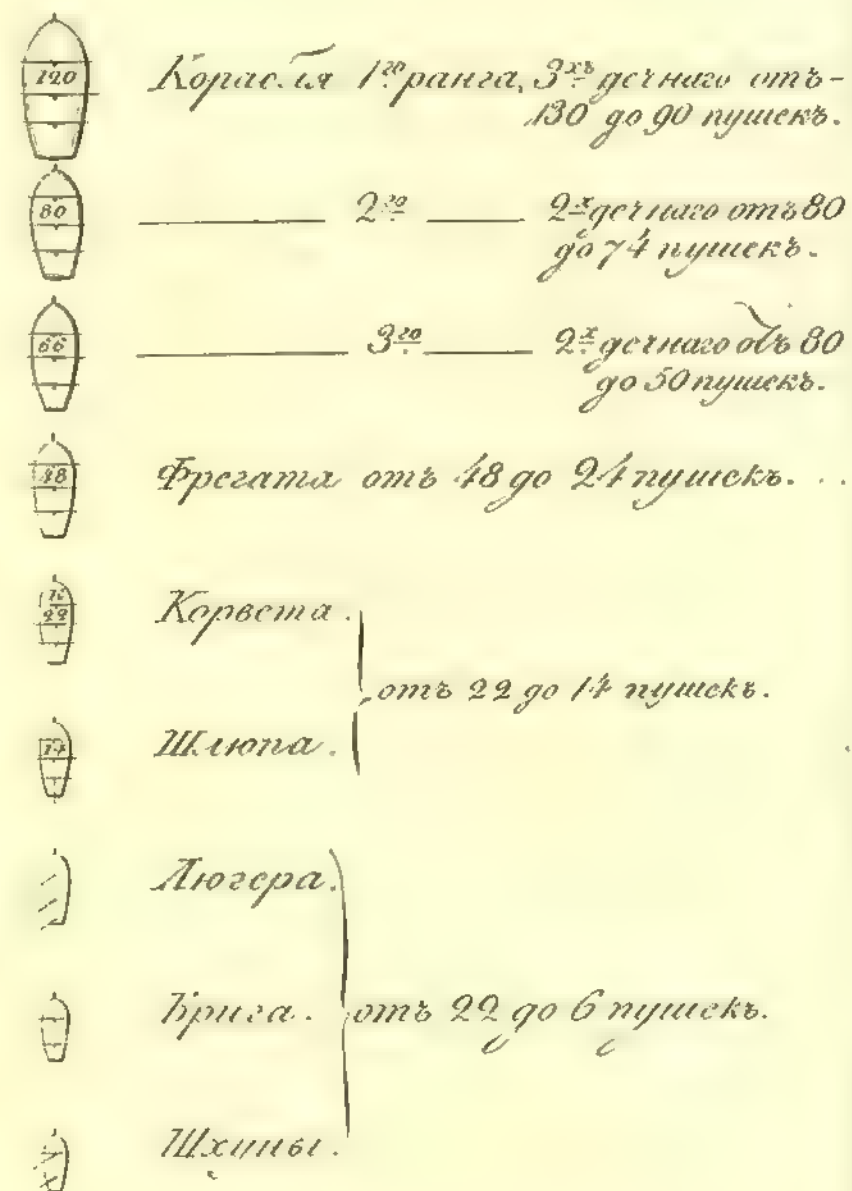 120 Корабля 1го ранга, 3хъ дечнаго отъ-
130 до 90 пушекъ.
80 2го 2х дечнаго отъ 80
до 74 пушекъ.
66 3го 2х дечнаго отъ 80
до 50 пушекъ.
48 Фрегата отъ 48 до 24 пушекъ. . .
22 Корвета.
отъ 22 до 14 пушекъ.
Шлюпа.
Люгера.
Брига. отъ 22 до 6 пушекъ.
Шхуны.